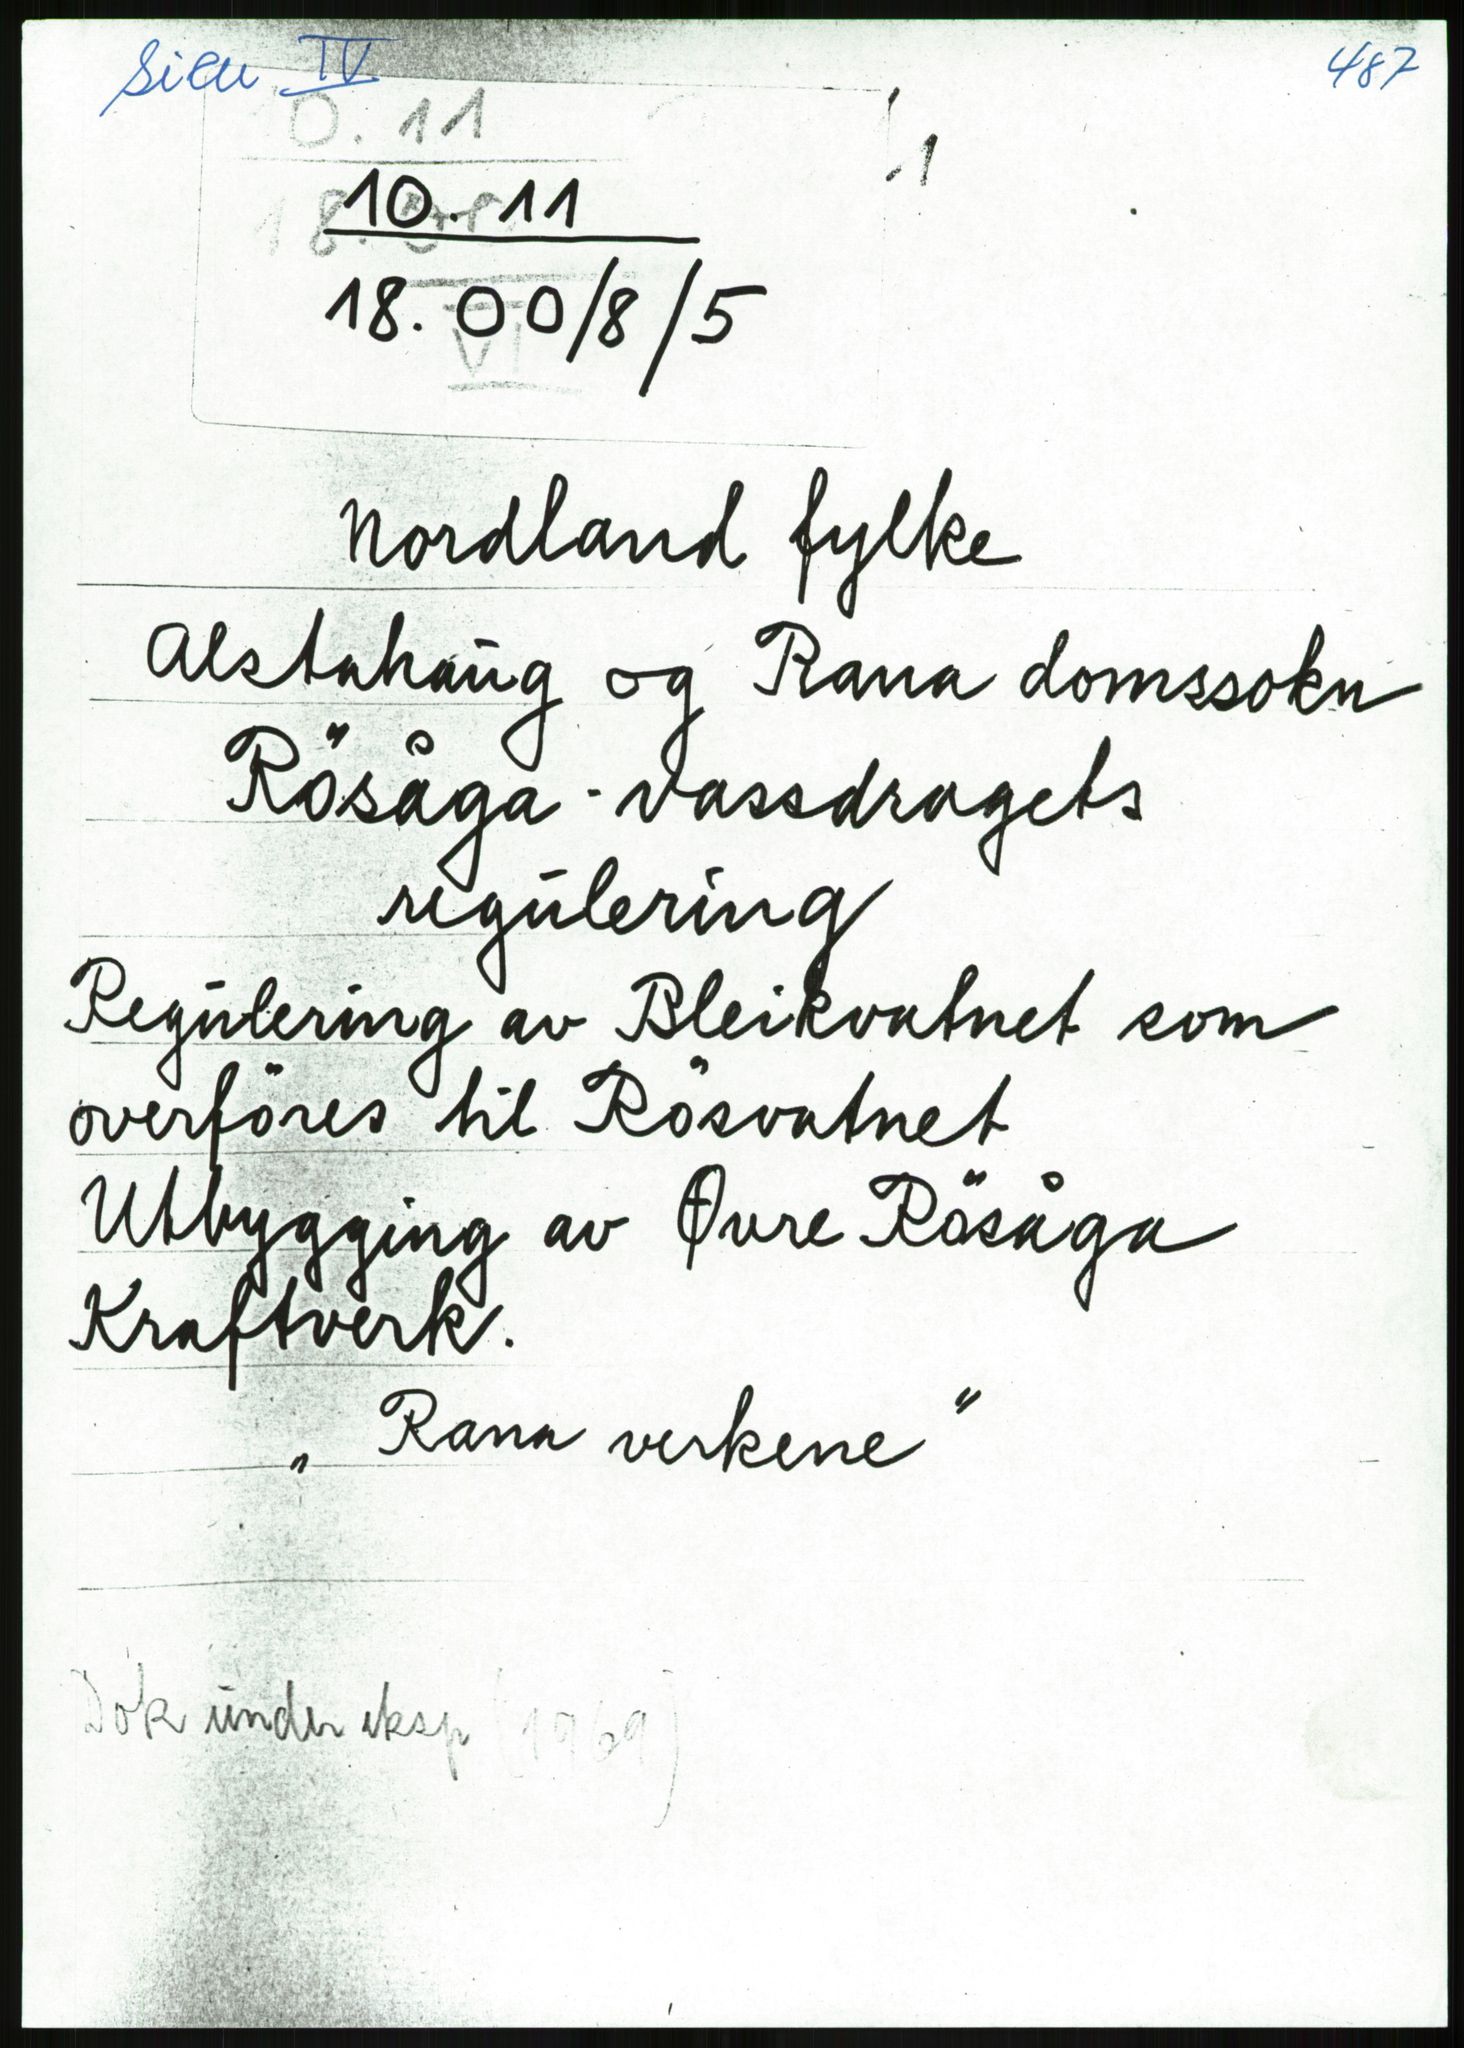 IV
487
0.11
10.11
18.00/8/5
VI
Nordland fylke
Alstahaug og Rana domssokn
Rösåga-vassdragets
regulering
Regulering av Bleikvatnet som
overföres til Rösvatnet
Utbygging av Øvre Rösåga
Kraftverk.
„Rana verkene"
Dok under eksp (1969)